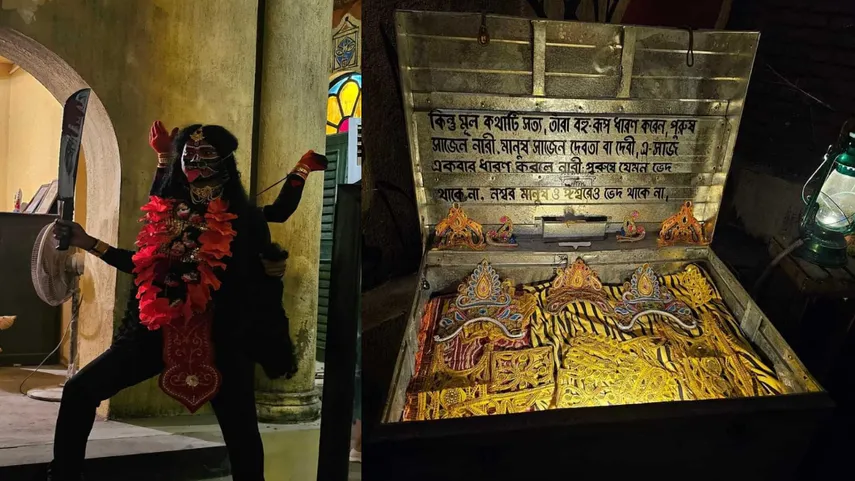 কিন্তু মূল কথাটি সত্য, তারা বহু-রূপ ধারণ করেন, পুরুষ
সাজেন নারী, মানুষ সাজেন দেবতা বা দেবী, এ-সাজ
একবার ধারণ করলে নারী পুরুষে যেমন ভেদ
থাকে না, নশ্বর মানুষ ও ঈশ্বরেও ভেদ থাকে না,